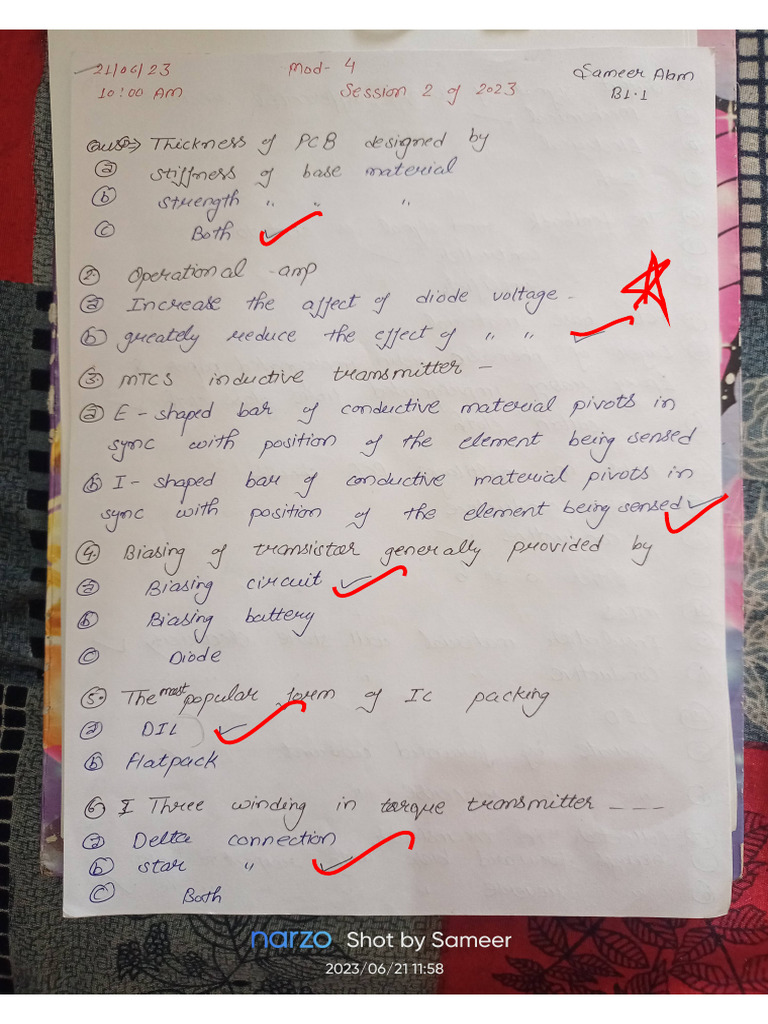 21/06/23 Mod- 4 Sameer Alam
10:00 AM Session 2 of 2023 B1.1
Ques⇒ Thickness of PCB designed by
(a) stiffness of base material
(b) strength " " "
(c) Both
2. Operational -amp
(a) Increase the affect of diode voltage -
(b) greately reduce the effect of " "
3. MTCS inductive transmitter -
(a) E - shaped bar of conductive material pivots in
sync with position of the element being sensed
(b) I - shaped bar of conductive material pivots in
sync with position of the element being sensed
(4) Biasing of transistar generally provided by
(a) Biasing circuit
(b) Biasing battery
(c) Diode
5. The most popular form of IC packing
(a) DIL
(b) flatpack
6. I Three winding in torque transmitter - - -
(a) Delta connection
(b) star "
(c) Both
narzo Shot by Sameer
2023/06/21 11:58